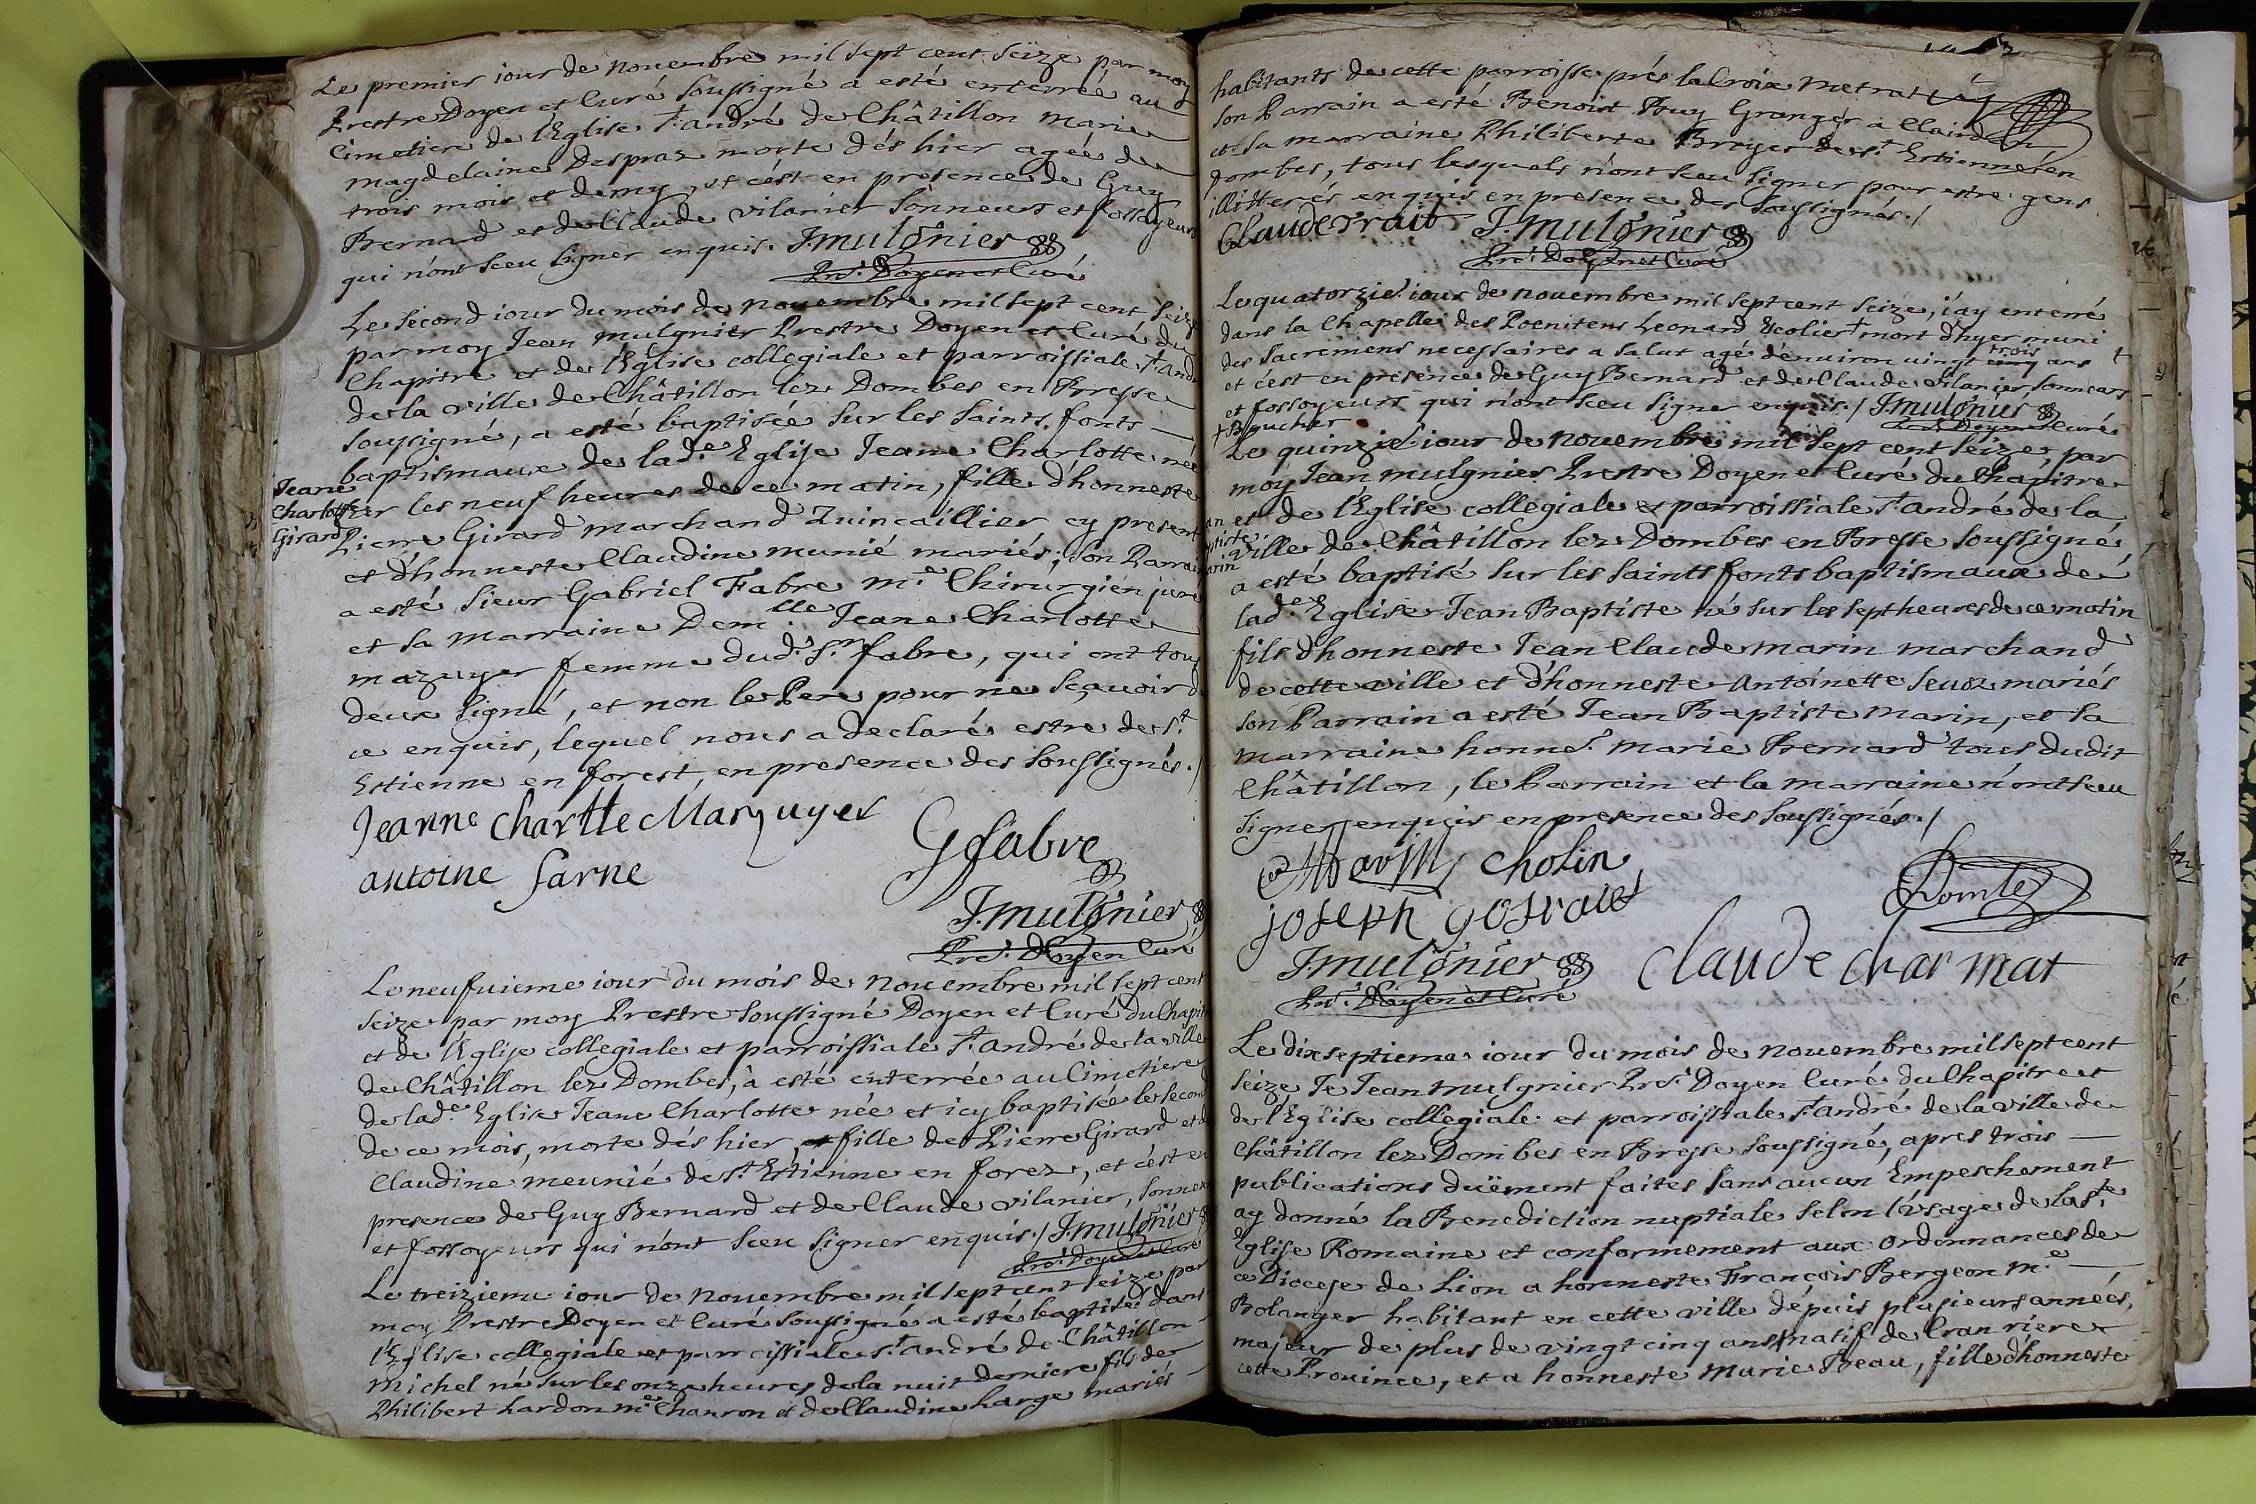 Le premier iour de nouembre mil sept cent seize par moy
Prestre Doyen et Curé soussigné a esté enterrée au
Cimetiere de l'Eglise St. andré de Châtillon Marie
magdelaine Despraz morte dés hier agée de
trois mois et demy, et c'est en presence de Guy
Bernard et de Claude vilanier sonneurs et fossoyeurs
qui n'ont sceu signer enquis. J. mulgnier
Pre. Doyen et Curé
Le second iour du mois de nouembre mil sept cent seize
par moy Jean mulgnier Prestre Doyen et Curé du
Chapitre et de l'Eglise collegiale et parroissiale St. andré
de la ville de Châtillon lez Dombes en Bresse
sousigné, a esté baptisée sur les saints fonts
baptismaux de lade. Eglise Jeane Charlotte née
Jeane
Charlotte
Girard
sur les neuf heures de ce matin, fille d'honneste
Pierre Girard marchand Quincaillier cy present
et d'honneste Claudine munié mariés; son Parrain
a esté sieur Gabriel Fabre me. Chirurgien juré
et sa marraine Demlle. Jeane Charlotte
mazuyer femme dud. sr. fabre, qui ont tous
deux signé, et non le Pere pour ne sçauoir de
ce enquis, lequel nous a declaré estre de St.
Estienne en forest, en presence des soussignés./
Jeanne chartlle Mazuyer
Gfabre
antoine farne
J. mulgnier
Pre. Doyen Curé
Le neufuieme iour du mois de nouembre mil sept cent
seize par moy Prestre soussigné Doyen et Curé du Chapitre
et de l'Eglise collegiale et parroissiale St. andré de la ville
de Châtillon lez Dombes, à esté enterrée au Cimetiere
de lade. Eglise Jeane Charlotte née et icy baptisée le second
de ce mois, morte dés hier, fille de Pierre Girard et de
Claudine meunié de St. Estienne en forez, et c'est en
presence de Guy Bernard et de Claude vilanier, sonneurs
et fossoyeurs qui n'ont sceu signer enquis./ J. mulgnier
Pre. Doyen et Curé
Le treizieme iour de nouembre mil sept cent seize par
moy Prestre Doyen et Curé soussigné a esté baptisé dans
l'Eglise collegiale et parroissiale St. andré de Châtillon
Michel né sur les onze heures de la nuit derniere fils de
Philibert hardon me. Charron et de Claudine harge mariés
habitants de cette parroisse prés la Croix Metrat
son Parrain a esté Benoist Ruy Granger a
et sa marraine Philiberte Broyer de St. Estienne en
Dombes, tous lesquels n'ont sceu signer pour estre gens
illitterés enquis en presence des soussignés./
Claude Trait J. mulgnier
Pre. Doyen et Curé
Le quatorzie. iour de nouembre mil sept cent seize, i'ay enterré
dans la Chapelle des Poenitens Leonard Ecolier + mort d'hyer muni
des sacremens necessaires a salut agé d'enuiron uingt trois ans +
et c'est en presence de Guy Bernard et de Claude vilanier sonneurs
et fossoyeurs qui n'ont sceu signer enquis./ J. mulgnier
+ Boucher
Pre. Doyen Curé
Le quinzie. iour de nouembre mil sept cent seize, par
moy Jean mulgnier Prestre Doyen et Curé du Chapitre
et de l'Eglise collegiale et parroissiale St. andré de la
ville de Châtillon lez Dombes en Bresse soussigné
a esté baptisé sur les saints fonts baptismaux de
lade. Eglise Jean Baptiste né sur les sept heures de ce matin
fils d'honneste Jean Claude marin marchand
de cette ville et d'honneste Antoinette seuoz mariés
son Parrain a esté Jean Baptiste marin, et sa
marraine honne. marie Bernard tous dudit
Châtillon, le Parrain et la marraine n'ont sceu
signer enquis en presence des soussignés./
Marin cholin
joseph
J. mulgnier
claude charmat
Pre. Doyen et Curé
Le dixseptieme iour du mois de nouembre mil sept cent
seize Je Jean mulgnier Pre. Doyen Curé du Chapitre et
de l'Eglise collegiale et parroissiale St. andré de la ville de
Châtillon lez Dombes en Bresse soussigné, apres trois
publications duëment faites sans aucun Empeschement
ay donné la Benediction nuptiale selon l'vsage de la ste.
Eglise Romaine et conformement aux ordonnances de
ce Diocese de Lion a honneste François Bergeon me.
Bolanger habitant en cette ville dépuis plusieurs années,
majeur de plus de vingt cinq ans natif de
cette Prouince, et a honneste Marie Beau, fille d'honneste